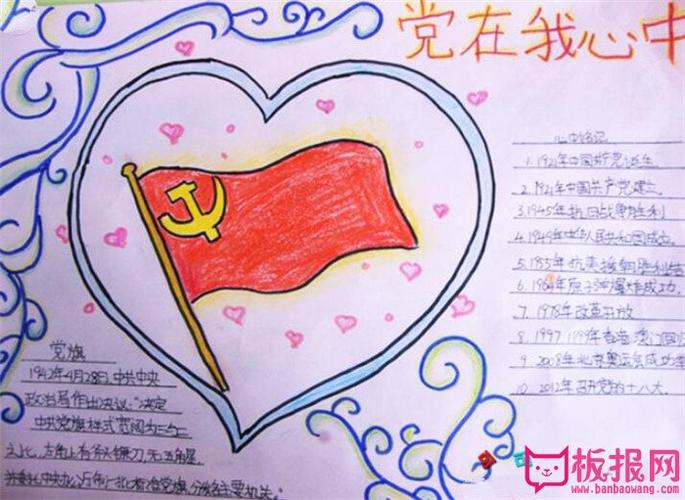 党在我心中
心中铭记
1.1921年中国共产党诞生
2.1921年中国共产党建立.
3.1945年抗日战争胜利
4.1949年中华人民共和国成立.
5.1955年抗美援朝胜利结
6.1964年原子弹爆炸成功.
7.1978年改革开放
8.1997 1999年香港澳门回归
9.2008年北京奥运会成功举
10.2012年召开党的十八大.
党旗
1942年4月28日,中共中央
政治局作出决议:"决定
中共党旗样式宽阔为三与二
之比,左角上有斧头镰刀,无五角星,
并委托中央办公厅
板报网
www.banbaowang.com